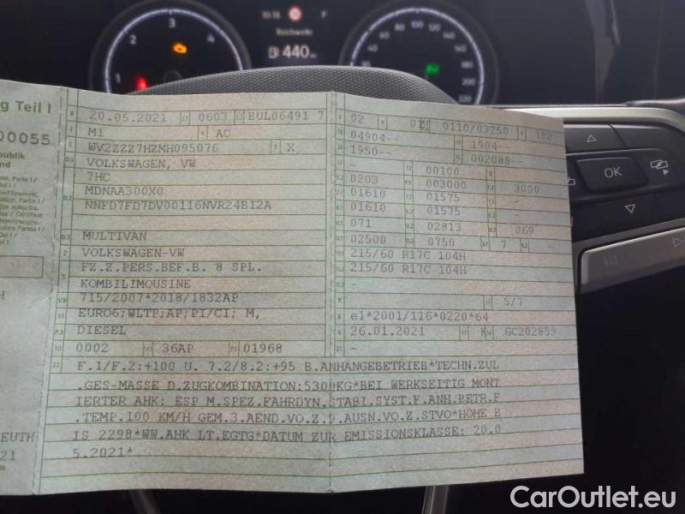 440
g Teil I
00055
OK
20.05.2021 0603 EUL06491 7
M1 AC
WV2ZZZ7HZMH095076 X
VOLKSWAGEN, VW
7HC
MDNAA300X0
NNFD7FD7DV00116NVR24B12A
MULTIVAN
VOLKSWAGEN-VW
FZ.Z.PERS.BEF.B. 8 SPL.
KOMBILIMOUSINE
715/2007*2018/1832AP
EURO6;WLTP;AP;PI/CI; M,
DIESEL
0002 36AP 01968
02 0110/03250
04904-- 1904--
1950-- 002088--
00100
0203 003000 3000
01610 01575
01610 01575
071 02813 069
02500 0750 7
215/60 R17C 104H
215/60 R17C 104H
5/7
e1*2001/116*0220*64
26.01.2021 K GC202853
F.1/F.2:+100 U. 7.2/8.2:+95 B.ANHANGEBETRIEB*TECHN.ZUL
.GES-MASSE D.ZUGKOMBINATION:5300KG*BEI WERKSEITIG MONT
IERTER AHK: ESP M.SPEZ.FAHRDYN.STABI.SYST.F.ANH.BETR.F
.TEMP.100 KM/H GEM.3.AEND.VO.Z.9.AUSN.VO.Z.STVO*HOHE B
IS 2298*WW.AHK LT.EGTG*DATUM ZUR EMISSIONSKLASSE: 20.0
5.2021*
EUTH
21
CarOutlet.eu